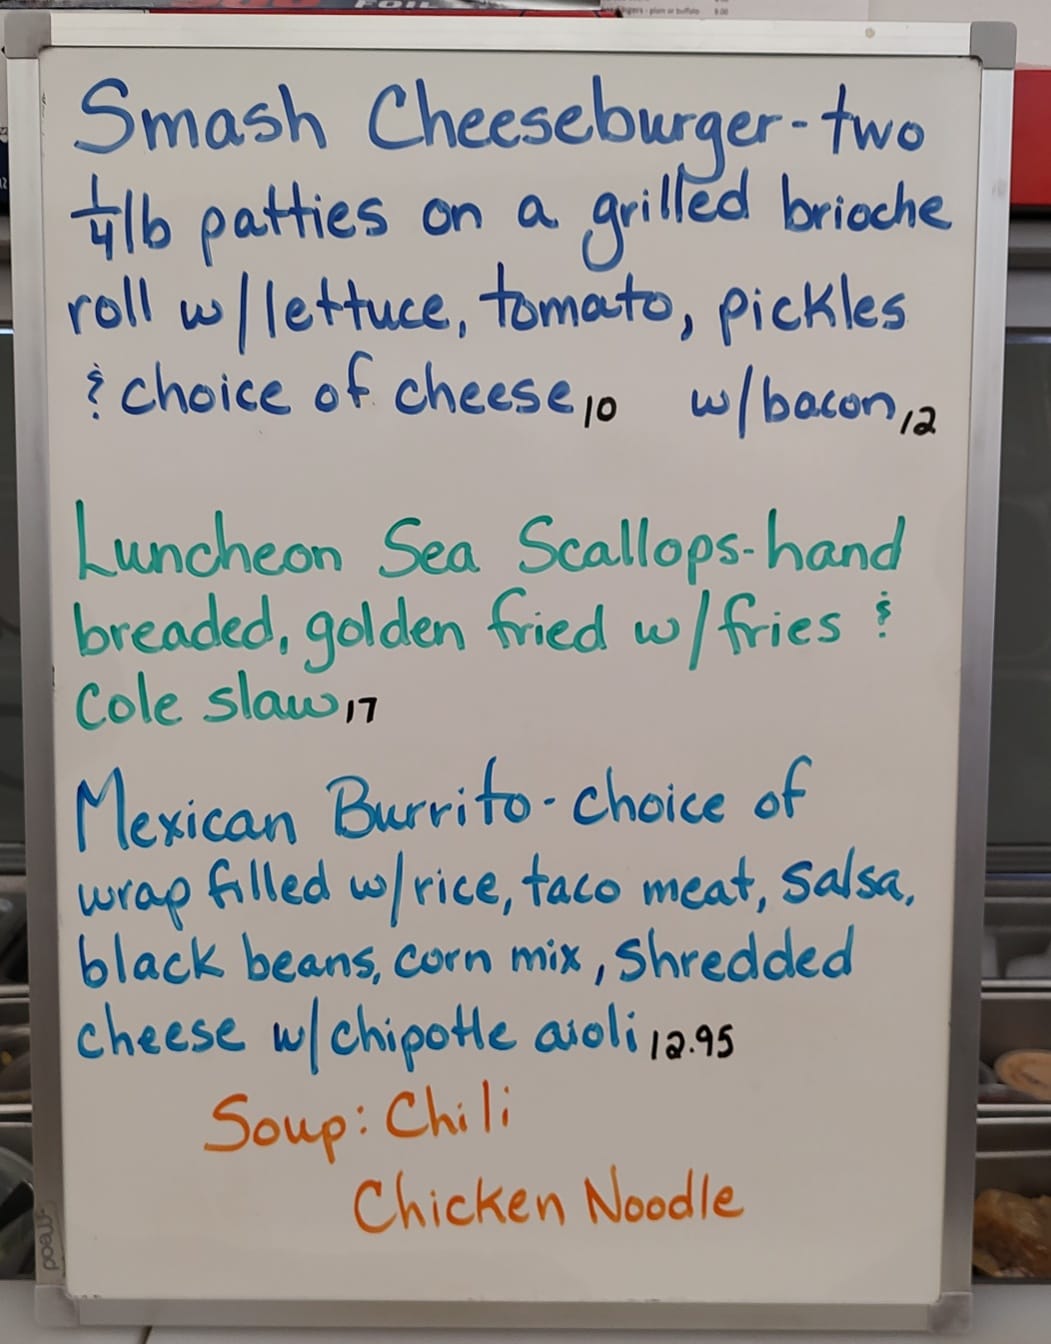 FOIL
fingers - plain or buffalo 8.00
Smash Cheeseburger - two
1/4 lb patties on a grilled brioche
roll w/ lettuce, tomato, pickles
& choice of cheese, 10 w/ bacon, 12
Luncheon Sea Scallops - hand
breaded, golden fried w/ fries &
Cole slaw, 17
Mexican Burrito - choice of
wrap filled w/ rice, taco meat, salsa,
black beans, corn mix, shredded
cheese w/ chipotle aioli 12.95
Soup: Chili
Chicken Noodle
Mead